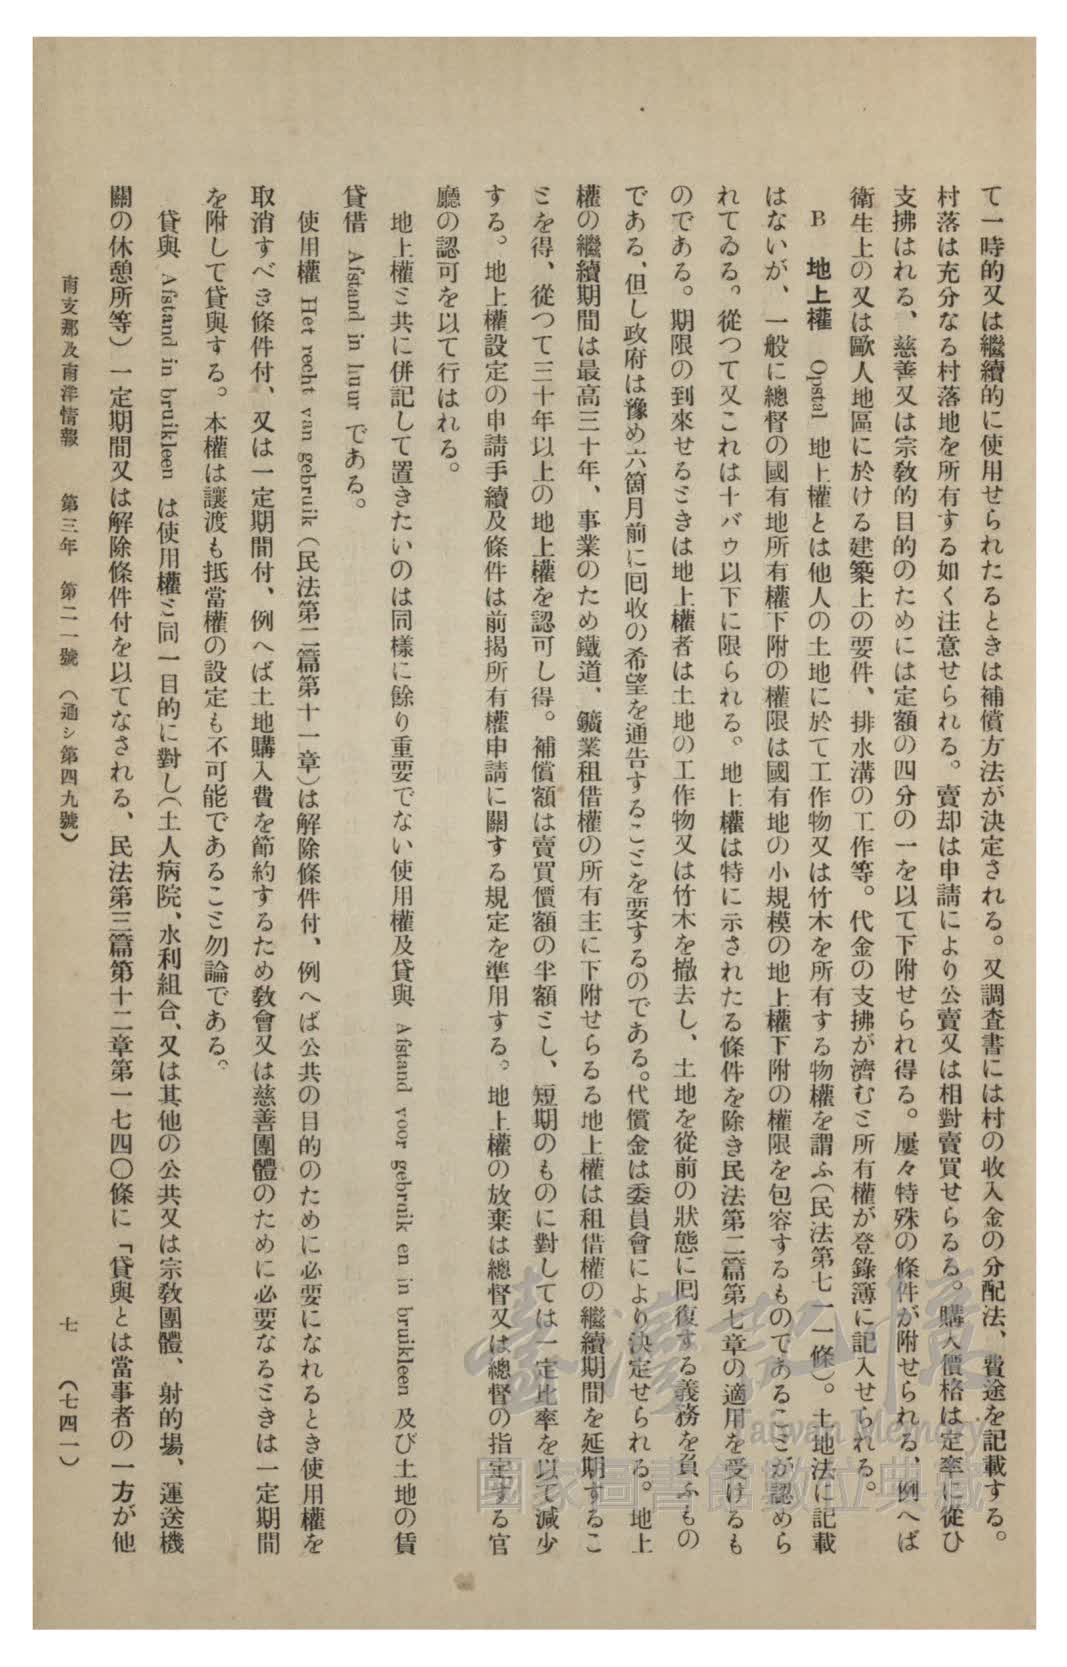 て一時的又は繼續的に使用せられたるときは補償方法が決定される。又調査書には村の收入金の分配法、費途を記載する。
村落は充分なる村落地を所有する如く注意せられる。賣却は申請により公賣又は相對賣買せらるる。購入價格は定率に從ひ
支拂はれる、慈善又は宗教的目的のためには定額の四分の一を以て下附せられ得る。屢々特殊の條件が附せられる、例へば
衛生上の又は歐人地區に於ける建築上の要件、排水溝の工作等。代金の支拂が濟むと所有權が登錄簿に記入せられる。
B 地上權 Opstal 地上權とは他人の土地に於て工作物又は竹木を所有する物權を謂ふ(民法第七一一條)。土地法に記載
はないが、一般に總督の國有地所有權下附の權限は國有地の小規模の地上權下附の權限を包容するものであることが認めら
れてゐる。從つて又これは十バウ以下に限られる。地上權は特に示されたる條件を除き民法第二篇第七章の適用を受けるも
のである。期限の到來せるときは地上權者は土地の工作物又は竹木を撤去し、土地を從前の狀態に回復する義務を負ふもの
である、但し政府は豫め六箇月前に回收の希望を通告することを要するのである。代償金は委員會により決定せられる。地上
權の繼續期間は最高三十年、事業のため鐵道、鑛業租借權の所有主に下附せらるる地上權は租借權の繼續期間を延期するこ
とを得、從つて三十年以上の地上權を認可し得。補償額は賣買價額の半額とし、短期のものに對しては一定比率を以て減少
する。地上權設定の申請手續及條件は前揭所有權申請に關する規定を準用する。地上權の放棄は總督又は總督の指定する官
廳の認可を以て行はれる。
地上權と共に併記して置きたいのは同樣に餘り重要でない使用權及貸與 Afstand voor gebruik en in bruikleen 及び土地の賃
貸借 Afstand in huur である。
使用權 Het recht van gebruik (民法第二篇第十一章)は解除條件付、例へば公共の目的のために必要になれるとき使用權を
取消すべき條件付、又は一定期間付、例へば土地購入費を節約するため教會又は慈善團體のために必要なるときは一定期間
を附して貸與する。本權は讓渡も抵當權の設定も不可能であること勿論である。
貸與 Afstand in bruikleen は使用權と同一目的に對し(土人病院、水利組合、又は其他の公共又は宗教團體、射的場、運送機
關の休憩所等)一定期間又は解除條件付を以てなされる、民法第三篇第十二章第一七四〇條に「貸與とは當事者の一方が他
南支那及南洋情報 第三年 第二一號 (通シ第四九號) 七 (七四一)
臺灣記憶
Taiwan Memory
國家圖書館數位典藏